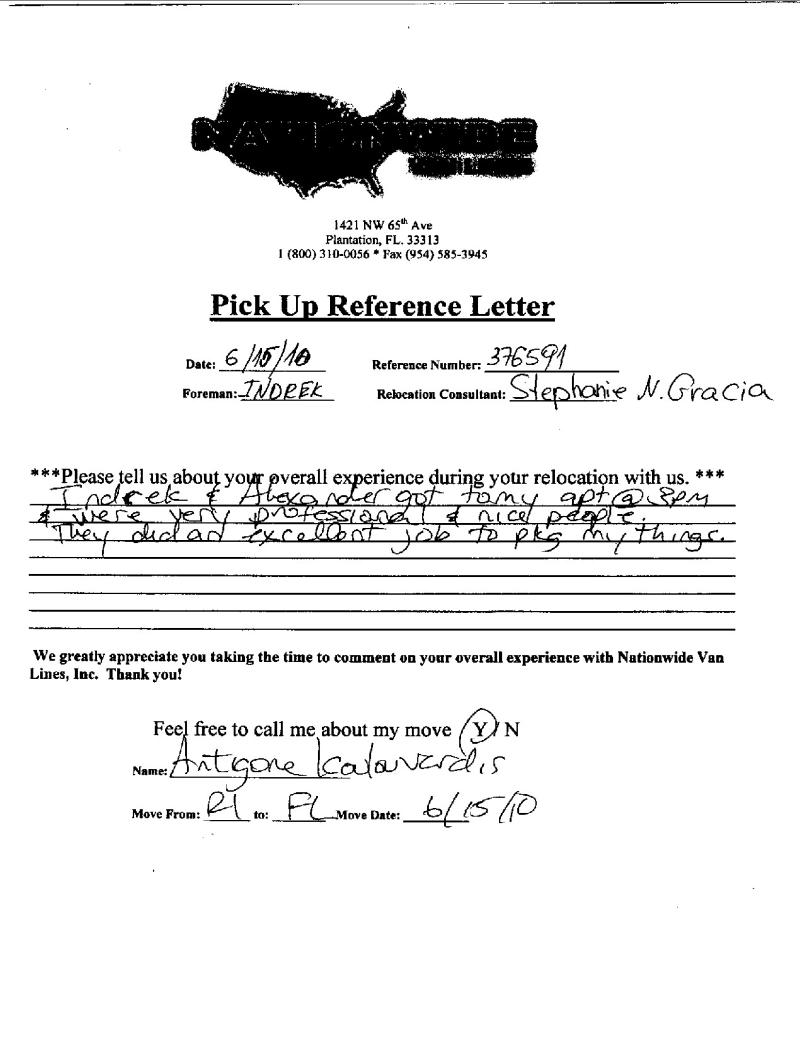 NATIONWIDE
VAN LINES
1421 NW 65th Ave
Plantation, FL. 33313
1 (800) 310-0056 * Fax (954) 585-3945
Pick Up Reference Letter
Date: 6/15/10 Reference Number: 376591
Foreman: INDREK Relocation Consultant: Stephanie N. Gracia
***Please tell us about your overall experience during your relocation with us. ***
Indrek & Alexander got to my apt @ 8pm
& were very professional & nice people.
They did an excellent job to pkg my things.
We greatly appreciate you taking the time to comment on your overall experience with Nationwide Van
Lines, Inc. Thank you!
Feel free to call me about my move Y/ N
Name: Antigone Kalaverdis
Move From: RI to: FL Move Date: 6/15/10